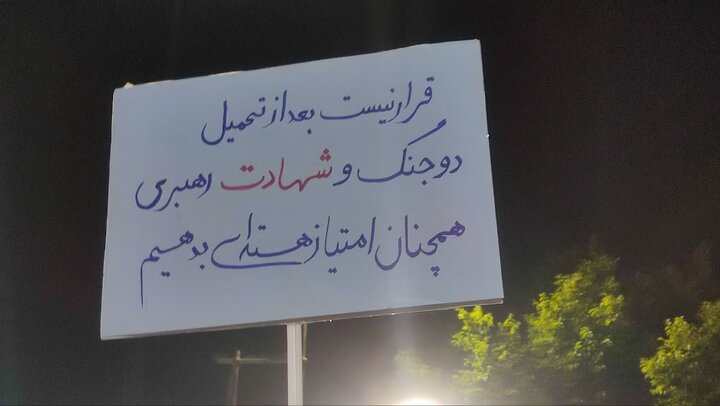 قرار نیست بعد از تحمیل
دو جنگ و شهادت رهبری
همچنان امتیاز هسته‌ای بدهیم